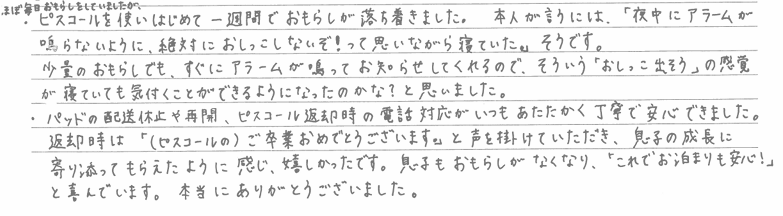 ほぼ毎日おもらしをしていましたが、
・ピスコールを使いはじめて一週間でおもらしが落ち着きました。 本人が言うには、「夜中にアラームが
鳴らないように、絶対におしっこしないぞ!って思いながら寝ていた。」そうです。
少量のおもらしでも、すぐにアラームが鳴ってお知らせしてくれるので、そういう「おしっこ出そう」の感覚
が寝ていても気付くことができるようになったのかな?と思いました。
・パッドの配送休止や再開、ピスコール返却時の電話対応がいつもあたたかく丁寧で安心できました。
返却時は「(ピスコールの)ご卒業おめでとうございます。」と声を掛けていただき、息子の成長に
寄り添ってもらえたように感じ、嬉しかったです。息子もおもらしがなくなり、「これでお泊まりも安心!」
と喜んでいます。 本当にありがとうございました。